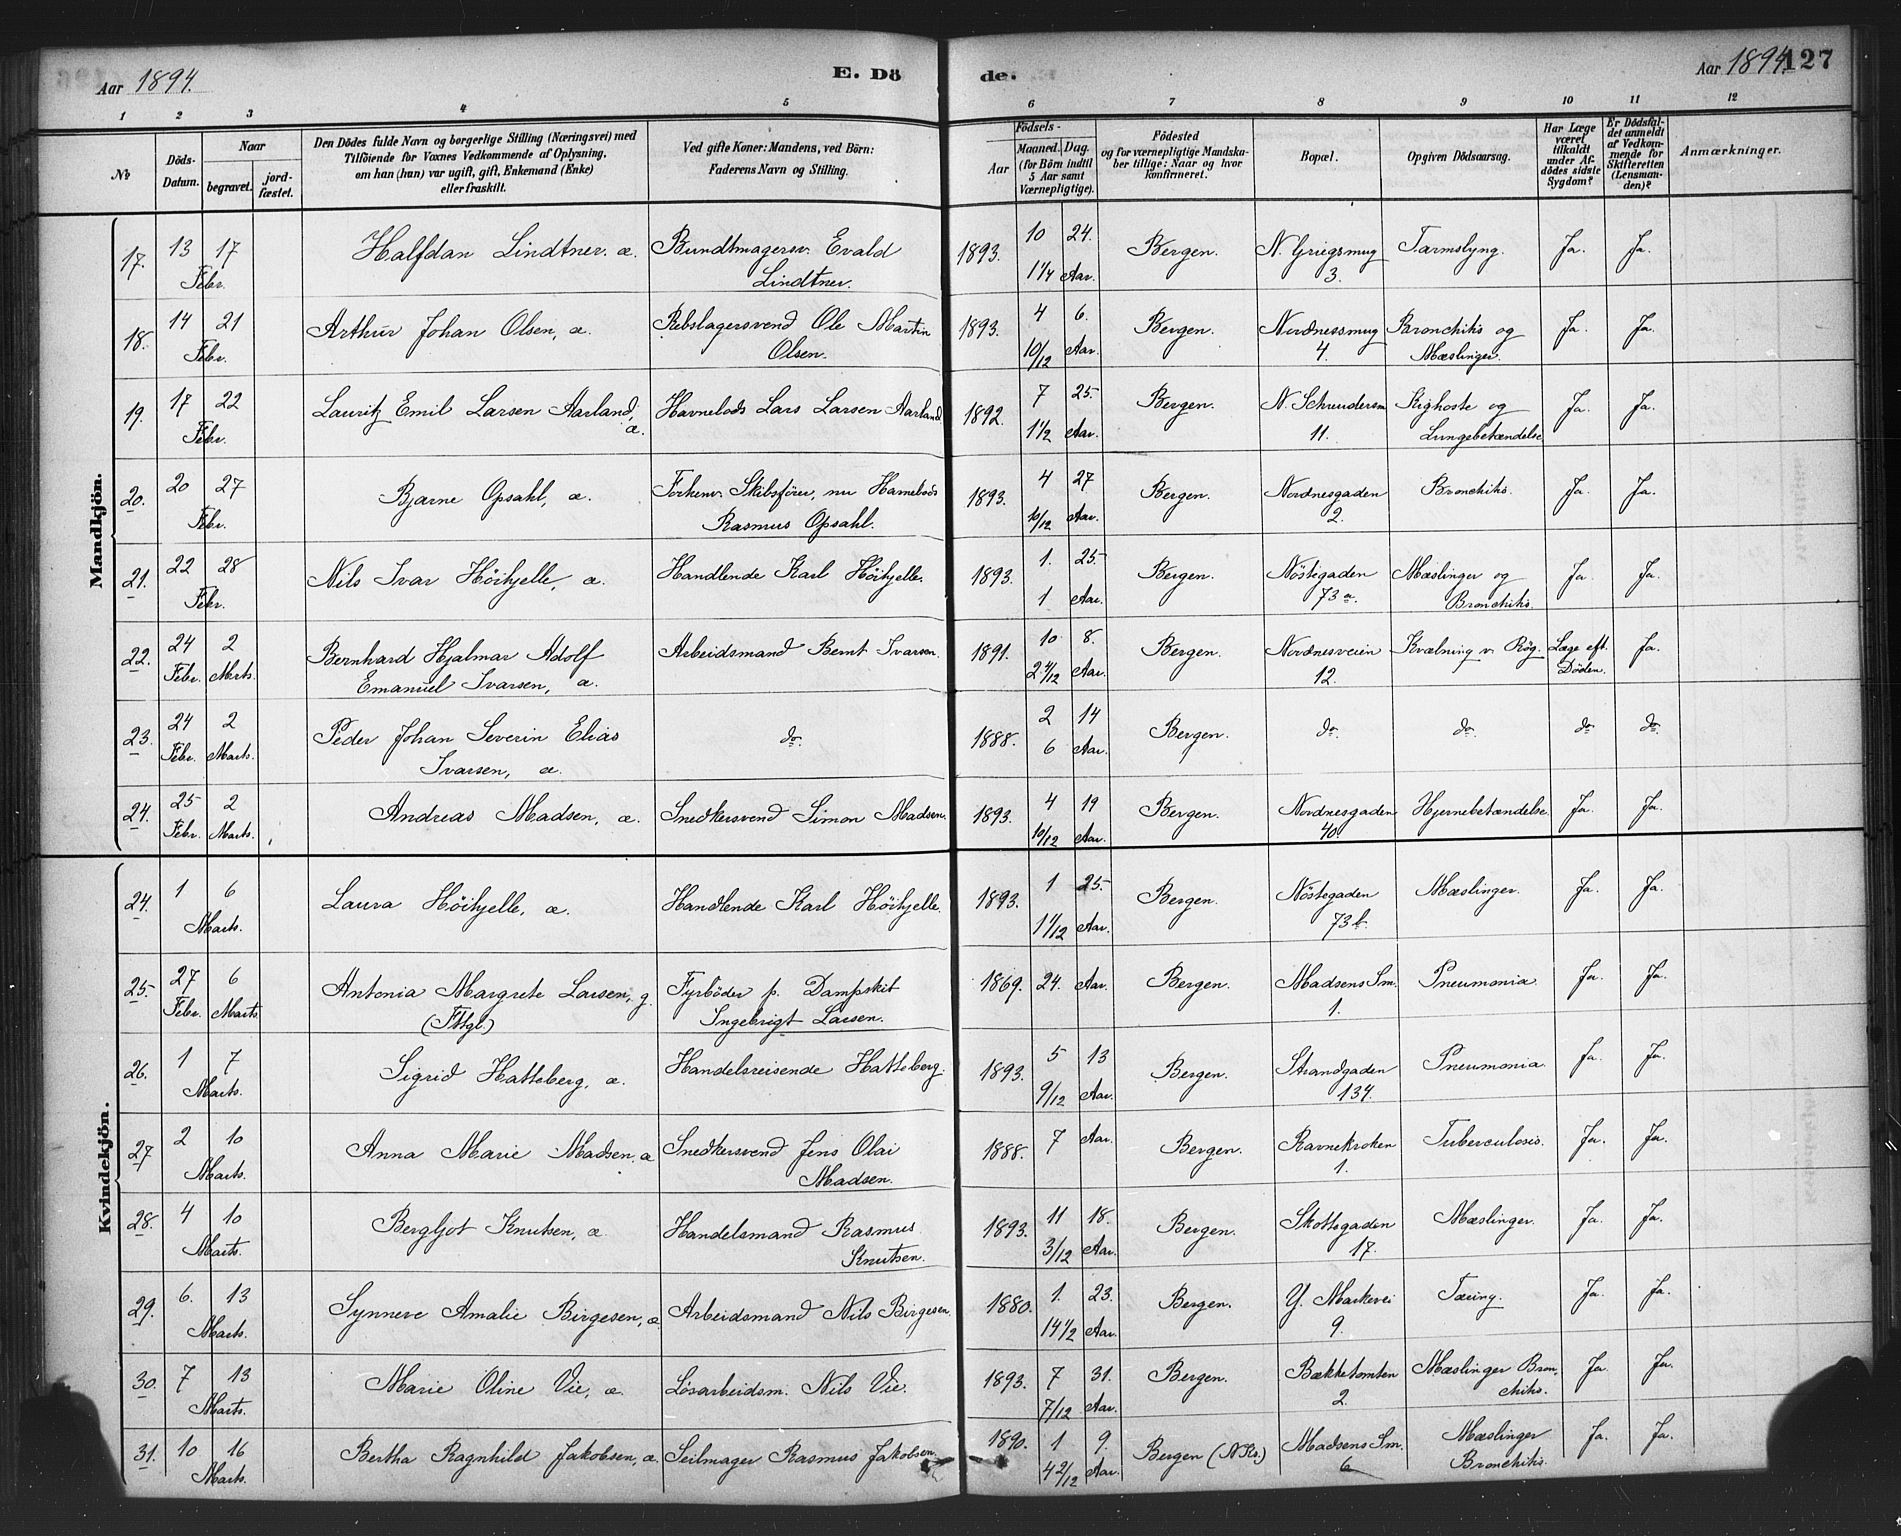 Aar 1894. E. Dö
de. Aar 1894. 127
1 2 3 4 5 6 7 8 9 10 11 12
No
Döds-Datum.
Naar
begravet.
jord-fæstet.
Den Dödes fulde Navn og borgerlige Stilling (Næringsvei) med
Tilföiende for Voxnes Vedkommende af Oplysning,
om han (hun) var ugift, gift, Enkemand (Enke)
eller fraskilt.
Ved gifte Koner: Mandens, ved Börn:
Faderens Navn og Stilling.
Födsels-
Aar
Maaned. Dag.
(for Börn indtil
5 Aar samt
Værnepligtige).
Födested
og for værnepligtige Mandska-
ber tillige: Naar og hvor
konfirmeret.
Bopæl.
Opgiven Dödsaarsag.
Har Læge
været
tilkaldt
under Af-
dödes sidste
Sygdom?
Er Dödsfal-
det anmeldt
af Vedkom-
mende for
Skifteretten
(Lensman-
den)?
Anmærkninger.
Mandkjön.
17. 13 17 Halfdan Lindtner. æ. Bundtmagersv. Evald 1893. 10 24. Bergen. N. Griegsmug Tarmslyng. Ja. Ja.
Febr. Lindtner. 1 1/4 Aar. 3.
18. 14 21 Arthur Johan Olsen, æ. Rebslagersvend Ole Martin 1893. 4 6. Bergen. Nordnessmug Bronchitis og Ja. Ja.
Febr. Olsen. 10/12 Aar. 4. Mæslinger.
19. 17 22 Lauritz Emil Larsen Aarland, Havnelods Lars Larsen Aarland 1892. 7 25. Bergen. N. Schreudersm. Kighoste og Ja. Ja.
Febr. æ. 1 1/2 Aar. 11. Lungebetændelse
20. 20 27 Bjarne Opsahl, æ. Forhenv. Skibsförer, nu Havnelods 1893. 4 27 Bergen. Nordnesgaden Bronchitis. Ja. Ja.
Febr. Rasmus Opsahl. 10/12 Aar. 2.
21. 22 28 Nils Ivar Höihjelle, æ. Handlende Karl Höihjelle. 1893. 1. 25. Bergen. Nöstegaden Mæslinger og Ja Ja.
Febr. 1 Aar. 73 a. Bronchitis.
22. 24 2 Bernhard Hjalmar Adolf Arbeidsmand Bernt Ivarsen. 1891. 10 8. Bergen. Nordnesveien Kvælning v. Røg. Læge eft. Ja.
Febr. Marts. Emanuel Ivarsen, æ. 2 4/12 Aar. 12. Döden.
23. 24 2 Peder Johan Severin Elias do. 1888. 2 14 Bergen. do. do. do. do.
Febr. Marts. Ivarsen, æ. 6 Aar.
24. 25 2 Andreas Madsen, æ. Snedkersvend Simon Madsen. 1893. 4 19 Bergen. Nordnesgaden Hjernebetændelse. Ja. Ja.
Febr. Marts. 10/12 Aar. 40.
Kvindekjön.
24. 1 6 Laura Höihjelle, æ. Handlende Karl Höihjelle. 1893. 1 25. Bergen. Nöstegaden Mæslinger. Ja. Ja.
Marts. 1 1/12 Aar. 73 b.
25. 27 6 Antonia Margrete Larsen, g. Fyrböder p. Dampskib 1869. 24. Aar. Bergen. Madsens Sm. Pneumonia. Ja. Ja.
Febr. Marts. Ingebrigt Larsen. 1.
26. 1 7 Sigrid Hatteberg, æ. Handelsreisende Hatteberg. 1893. 5 13 Bergen. Strandgaden Pneumonia. Ja. Ja.
Marts. 9/12 Aar. 134.
27. 2 10 Anna Marie Madsen. æ Snedkersvend Jens Olai 1888. 7 Aar. Bergen. Ravnekroken Tuberculosis. Ja. Ja.
Marts. Madsen. 1.
28. 4 10 Bergljot Knutsen, æ. Handelsmand Rasmus 1893. 11 18. Bergen. Skottegaden Mæslinger. Ja. Ja.
Marts. Knutsen. 3/12 Aar. 17.
29. 6. 13 Synneve Amalie Birgesen, æ. Arbeidsmand Nils Birgesen. 1880. 1. 23. Bergen. Y. Markevei Tæring. Ja. Ja.
Marts. 14 1/2 Aar. 9.
30. 7 13 Marie Oline Vie, æ. Lösarbeidsm. Nils Vie. 1893. 7 31. Bergen. Bækketomten Mæslinger Bron- Ja. Ja.
Marts. 7/12 Aar. 2. chitis.
31. 10 16 Bertha Ragnhild Jakobsen, æ. Seilmager Rasmus Jakobsen. 1890. 1 9. Bergen (N.Ks.) Madsens Sm. Mæslinger Ja. Ja.
Marts. 4 2/12 Aar. 6 Bronchitis.